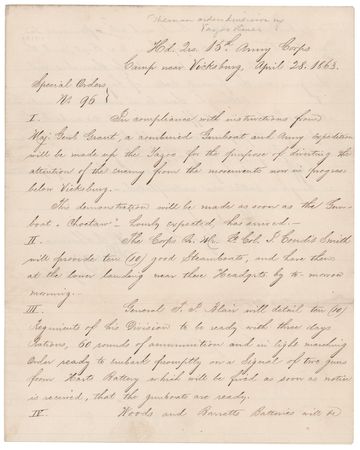 Sherman orders diversion up
Yazoo River
Hd. Qrs. 15th Army Corps
Camp near Vicksburg, April 28. 1863.
Special Orders
No 96
I. In compliance with instructions from
Maj Genl Grant, a combined Gunboat and Army expedition
will be made up the Yazoo for the purpose of diverting the
attention of the enemy from the movements now in progress
below Vicksburg.
This demonstration will be made as soon as the Gun
boat, Choctaw - hourly expected, has arrived. -
II The Corps Q. Mr. Lt Col. J. Condit Smith
will provide ten (10) good Steamboats, and have them
at the lower landing near these Headqrts by to-morrow
morning.
III. General F. P. Blair will detail ten (10)
Regiments of his Division to be ready with three days
Rations, 60 rounds of ammunition and in light marching
Order ready to embark promptly on a Signal of two guns
from Harts Battery which will be fired as soon as notice
is received, that the gunboats are ready.
IV Woods and Barretts Batteries will be